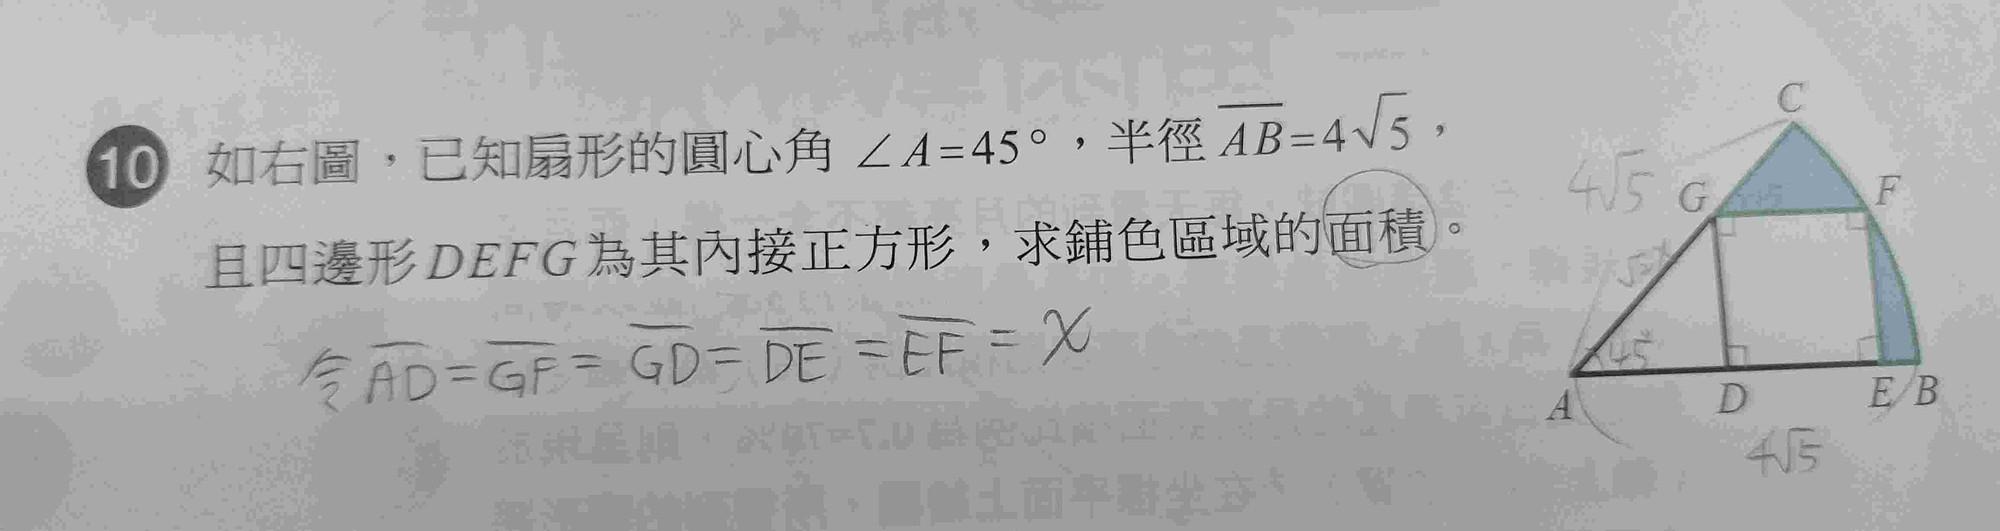 10 如右圖，已知扇形的圓心角 ∠A=45°，半徑 AB=4√5，
且四邊形DEFG為其內接正方形，求鋪色區域的面積。
令 AD=GF=GD=DE=EF=x
C
4√5
G
F
45°
A
D
E
B
4√5